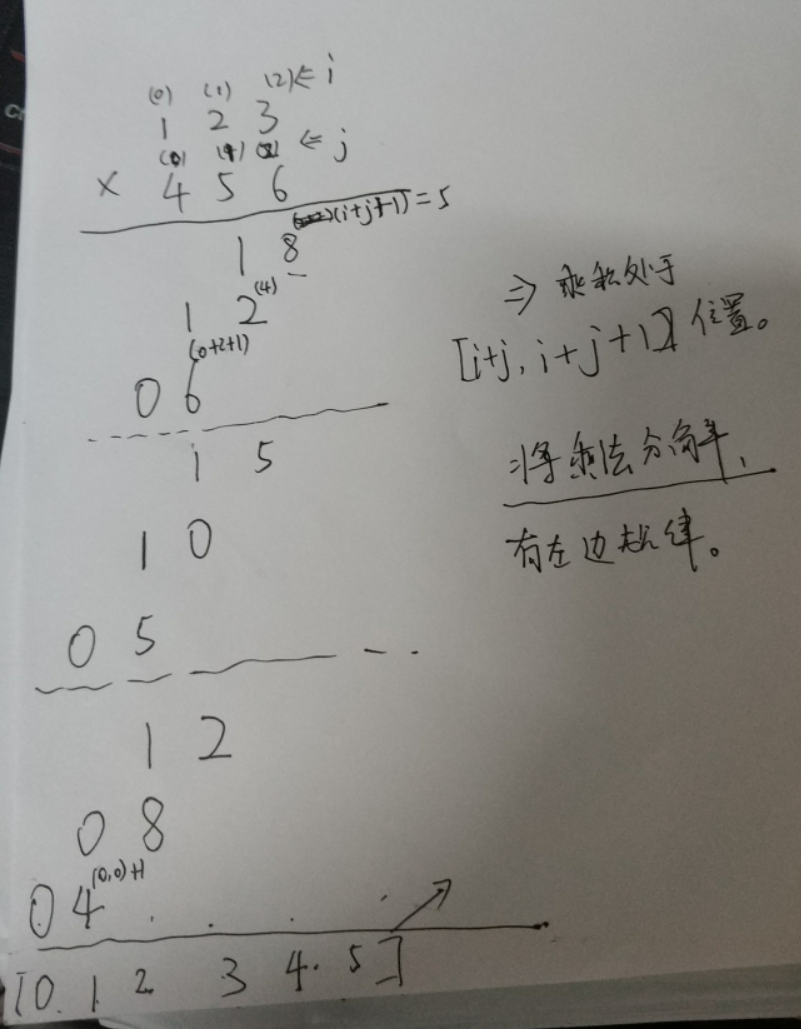 (0) (1) (2) ⇐ i
1 2 3
(0) (1) (2) ⇐ j
× 4 5 6
1 8 (i+j+1) = 5
1 2 (4)
(0+2+1)
0 6
1 5
1 0
0 5
1 2
0 8
0 4 (0,0)+1
[0. 1. 2 3 4. 5]
⇒ 乘积处于
[i+j, i+j+1] 位置。
将乘法分解、
有左边规律。